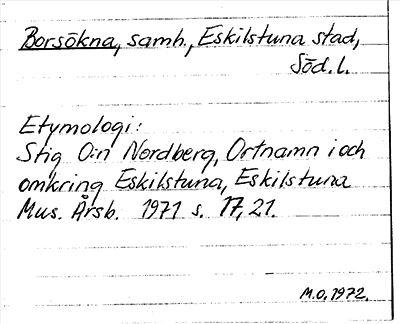 Borsökna, samh., Eskilstuna stad,
Söd. l.
Etymologi:
Stig O:n Nordberg, Ortnamn i och
omkring Eskilstuna, Eskilstuna
Mus. Årsb. 1971 s. 17, 21.
M.O. 1972.